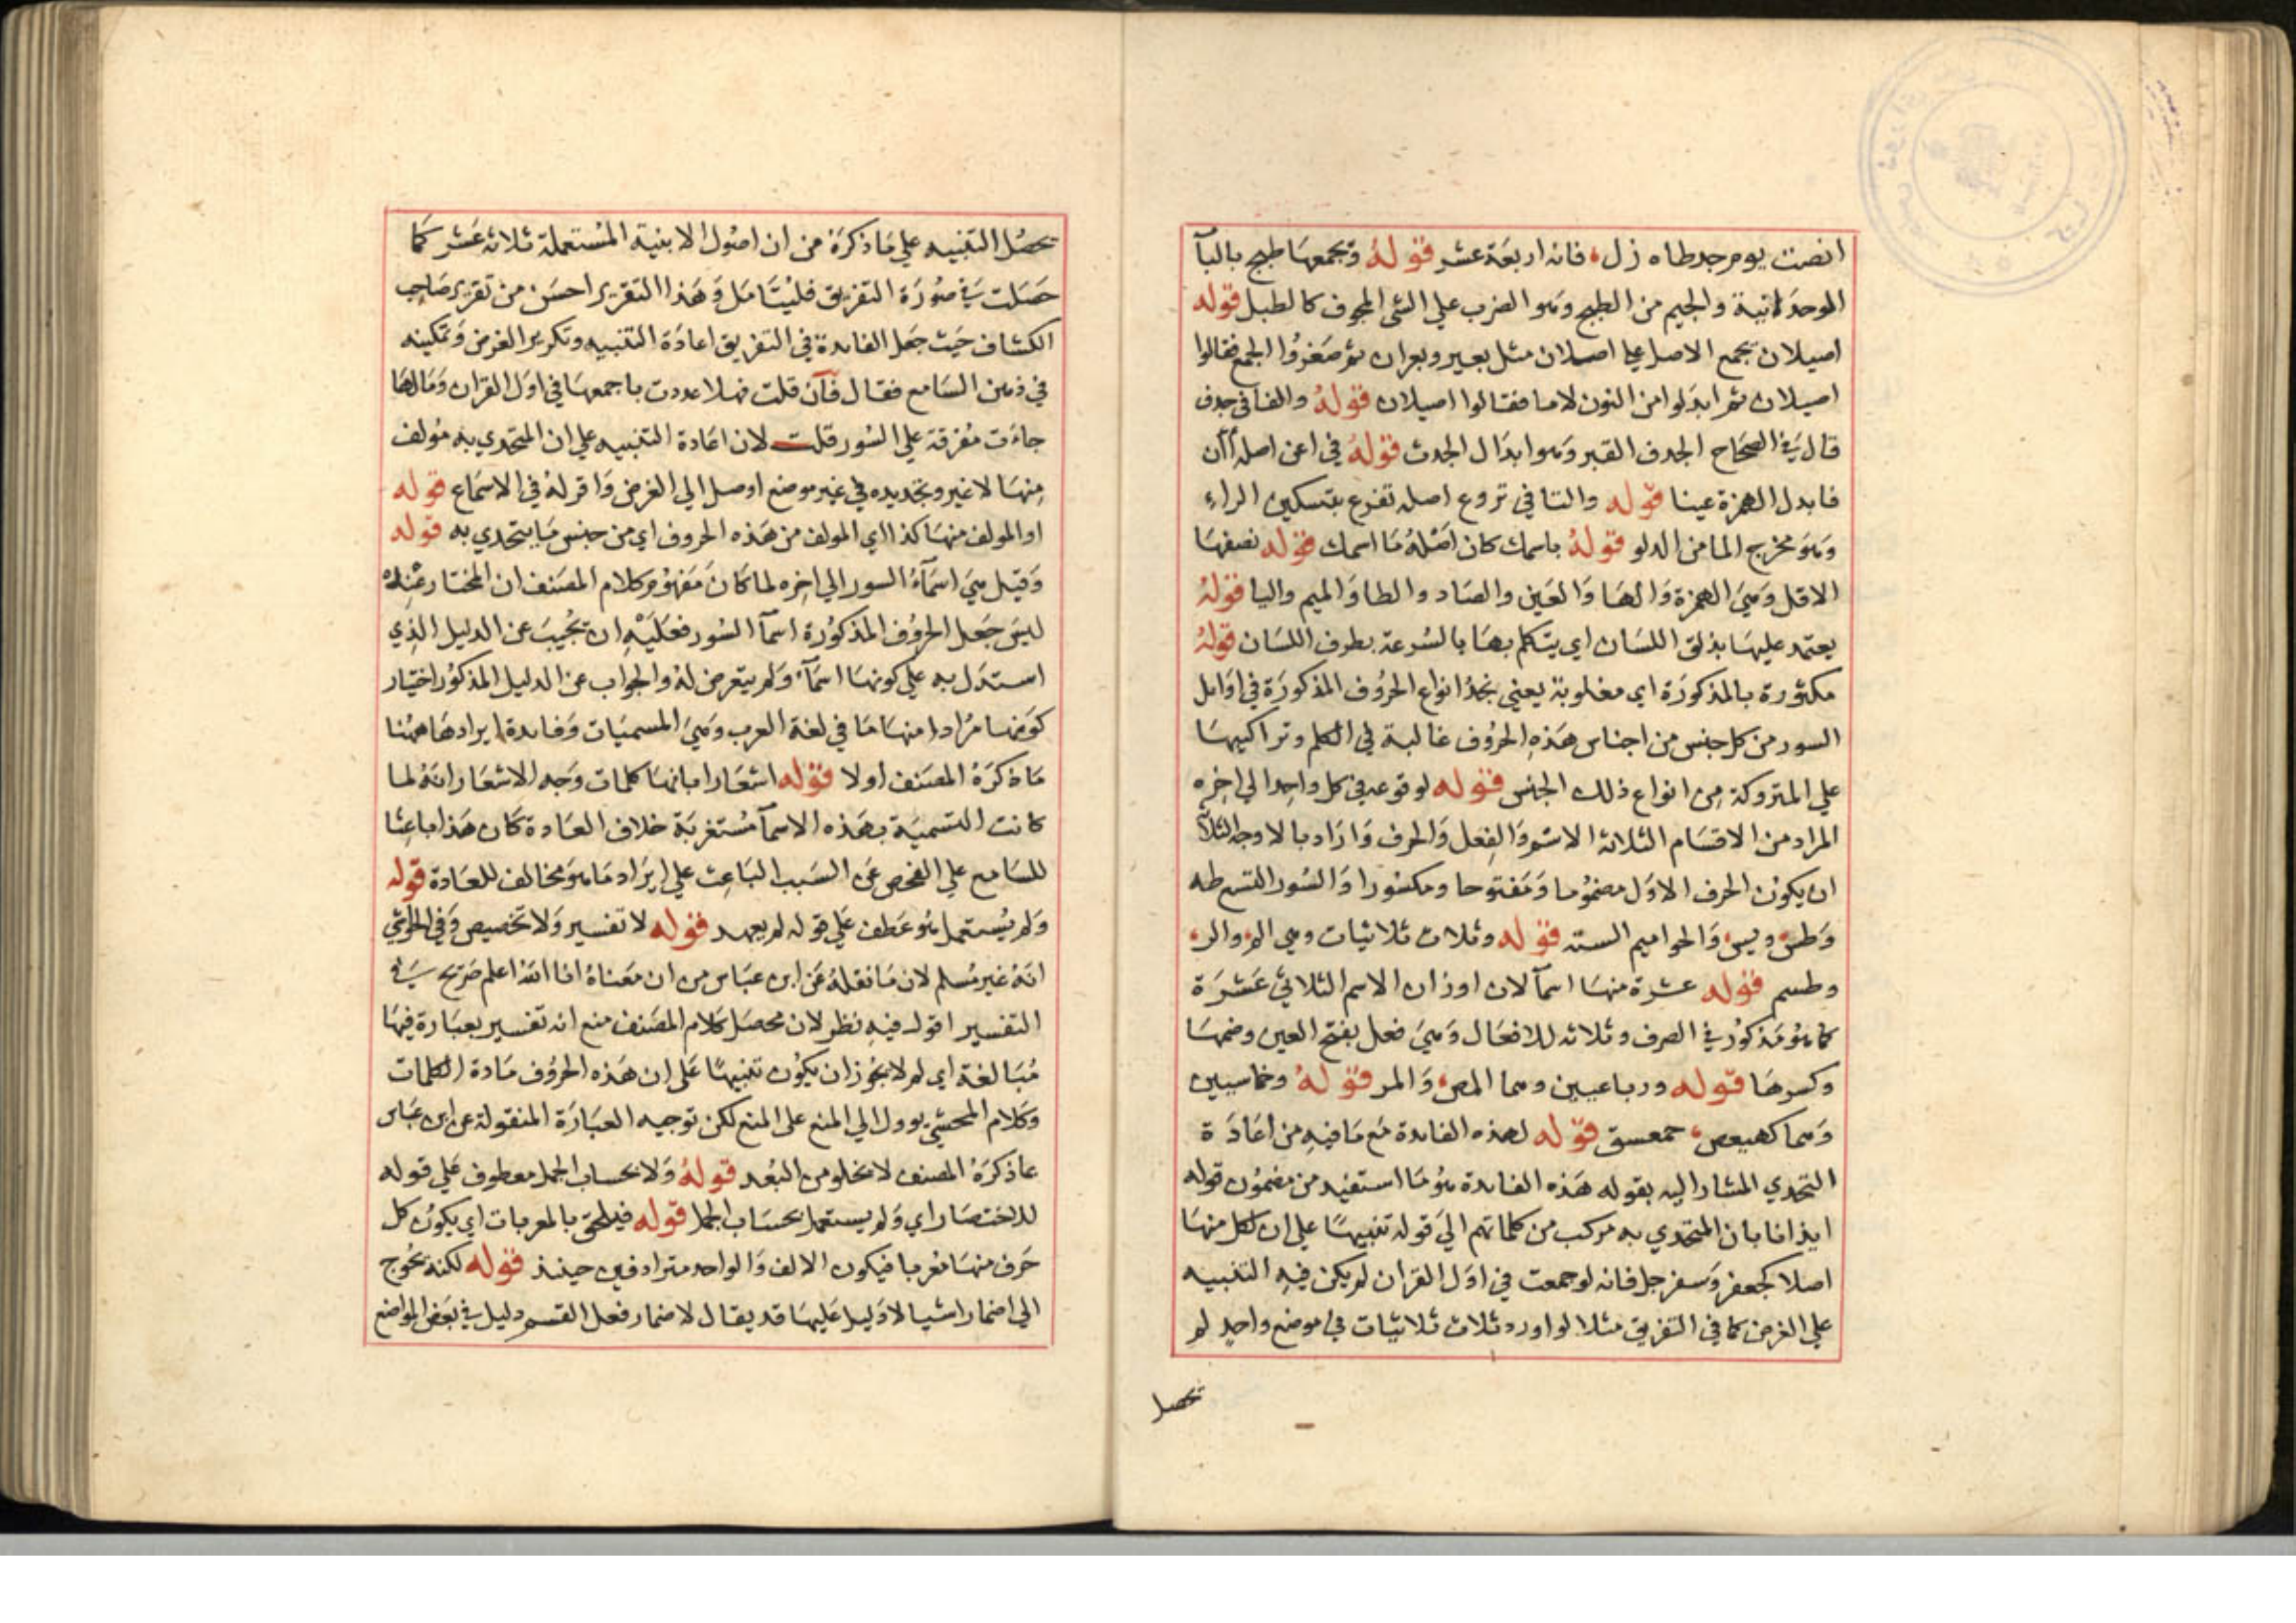 انصت يوم جد طاه زل، فانه اربعة عشر قوله وتجمعها طبج بالبآ
الموحدتانية والجيم من الطبج وهو الضرب علي الشي المجوف كالطبل قوله
اصيلان بجمع الاصل علي اصلان مثل بعير وبعران ثم صغروا الجمع فقالوا
اصيلان ثم ابدلوا من النون لاما فقالوا اصيلان قوله والفا في جدف
قال في الصحاح الجدف القبر وهو ابدال الجدث قوله في اعن اصله اأن
فابدل الهمزة عينا قوله والتا في تروع اصله تفرع بتسكين الراء
وهو مخرج الما من الدلو قوله باسمك كان اصله ما اسمك قوله نصفها
الاقل وهي الهمزة والها والعين والصاد والطا والميم واليا قوله
يعتمد عليها بذلق اللسان اي يتكلم بها بالسرعة بطرف اللسان قوله
مكثورة بالمذكورة اي مغلوبة يعني نجد انواع الحروف المذكورة في اوايل
السور من كل جنس من اجناس هذه الحروف غالبة في الكلم وتراكيبها
علي المتروكة من انواع ذلك الجنس قوله لوقوعه في كل واحد الي اخره
المراد من الاقسام الثلاثة الاسم والفعل والحرف واراد بالاوجه الثلاثة
ان يكون الحرف الاول مضموما ومفتوحا ومكسورا والسور التسع طه
وطس ويس والحواميم السته قوله وثلاث ثلاثيات وهي الم والر،
وطسم قوله عشرة منها اسمآ لان اوزان الاسم الثلاثي عشرة
كما هو مذكور في الصرف وثلاثه للافعال وهي فعل بفتح العين وضمها
وكسرها قوله ورباعيين وهما المص، والمر قوله وخماسيين
وهما كهيعص، حمعسق قوله لهذه الفايدة مع ما فيه من اعادة
التحدي المشار اليه بقوله هذه الفايدة هو ما استفيد من مضمون قوله
ايذانا بان المتحدي به مركب من كلماتهم الي قوله تنبيها علي ان لكل منها
اصلا كجعفر وسفرجل فانه لو جمعت في اول القران لم يكن فيه التنبيه
علي الغرض كما في التفريق مثلا لو اورد ثلاث ثلاثيات في موضع واحد لم
تحصل
يحصل التنبيه علي ما ذكرة من ان اصول الابنية المستعملة ثلاثة عشر كما
حصلت في صورة التفريق فليتامل وهذا التقرير احسن من تقرير صاحب
الكشاف حيث جعل الفايدة في التفريق اعادة التنبيه وتكرير الغرض وتمكينه
في ذهن السامع فقال فآن قلت فهلا عددت باجمعها في اول القران ومالها
جاءت مفرقة علي السور قلت لان اعادة التنبيه علي ان المتحدي به مولف
منها لا غير وتجديده في غير موضع اوصل الي الغرض واقر له في الاسماع قوله
او المولف منها كذا اي المولف من هذه الحروف اي من جنس ما يتحدي به قوله
وقيل هي اسمآء السور الي اخره لما كان مفهوم كلام المصنف ان المختار عنده
ليس جعل الحروف المذكورة اسمآ السور فعليه ان يجيب عن الدليل الذي
استدل به علي كونها اسمآء ولم يتعرض له والجواب عن الدليل المذكور اختيار
كونها مرادا منها ما في لغة العرب وهي المسميات وفايدة ايرادها ههنا
ما ذكره المصنف اولا قوله اشعارا بانها كلمات وجه الاشعار انه لما
كانت التسمية بهذه الاسمآ مستغربة خلاف العادة كان هذا باعثا
للسامع علي الفحص عن السبب الباعث علي ايراد ما هو مخالف للعادة قوله
ولم يستعمل هو عطف علي قوله لم يعهد قوله لا تفسير ولا تخصيص وفي الحواشي
انه غير مسلم لان ما نقله عن ابن عباس من ان معناه انا الله اعلم صريح في
التفسير اقول فيه نظر لان محصل كلام المصنف منع انه تفسير بعبارة فيها
مبالغة اي لم لا يجوز ان يكون تنبيها علي ان هذه الحروف مادة الكلمات
وكلام المحشي يوول الي المنع علي المنع لكن توجيه العبارة المنقولة عن ابن عباس
عا ذكره المصنف لا يخلو من البعد قوله ولا بحساب الجمل معطوف علي قوله
للاختصار اي ولم يستعمل بحساب الجمل قوله فيلحق بالمعربات اي يكون كل
حرف منها معربا فيكون الالف والواحد مترادفين حينذ قوله لكنه يحوج
الي اضمار اشيا لا دليل عليها قد يقال لاضمار فعل القسم دليل في بعض المواضع